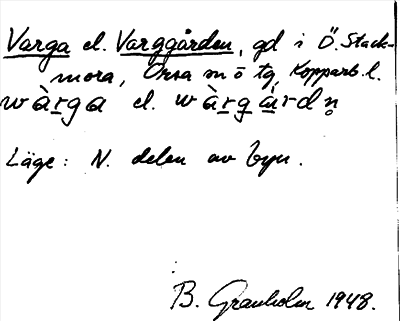 Varga el. Varggården, gd i Ö. Stack-
mora, Orsa sn o tg, Kopparb. l.
wàrga el. wàrgàrdn̥
Läge: N. delen av byn.
B. Granholm 1948.